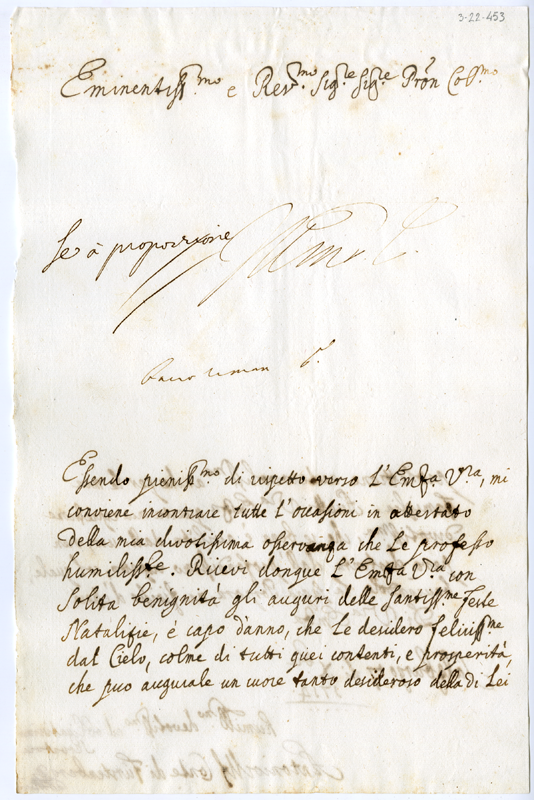 3-22-453
Eminentiss.mo e Rev.mo Sig.re Sig.re Prõn Col.mo
Se à proporzione
Essendo pieniss.mo di rispetto verso L'Emza V.ra, mi
conviene incontrare tutte l'occasioni in attestato
della mia divotissima osservanza che Le professo
humiliss.te. Ricevi donque L'Emza V.ra con
solita benignità gli auguri delle Santiss.me feste
Natalitie, e capo d'anno, che Le desidero feliciss.me
dal Cielo, colme di tutti quei contenti, e prosperità,
che può augurale un cuore tanto desideroso della di Lei